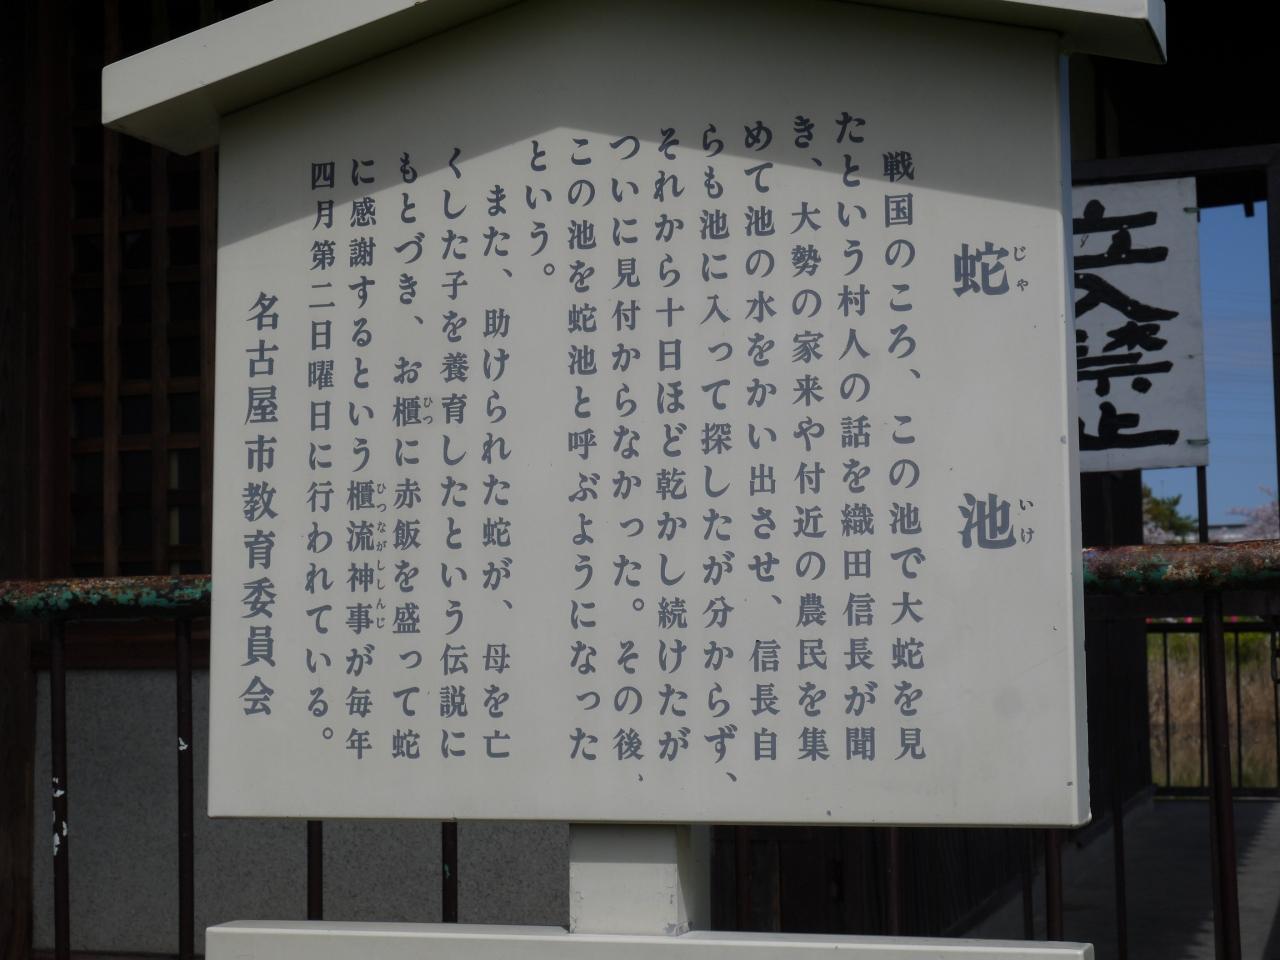 蛇池
じゃ いけ
戦国のころ、この池で大蛇を見
たという村人の話を織田信長が聞
き、大勢の家来や付近の農民を集
めて池の水をかい出させ、信長自
らも池に入って探したが分からず、
それから十日ほど乾かし続けたが
ついに見付からなかった。その後、
この池を蛇池と呼ぶようになった
という。
また、助けられた蛇が、母を亡
くした子を養育したという伝説に
もとづき、お櫃に赤飯を盛って蛇
ひつ
に感謝するという櫃流神事が毎年
ひつながししんじ
四月第二日曜日に行われている。
名古屋市教育委員会
立入禁止